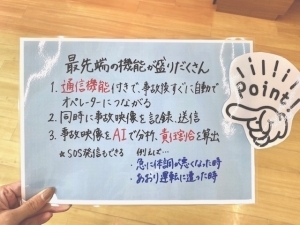 最先端の機能が盛りだくさん
1. 通信機能付きで、事故後すぐに自動で
オペレーターにつながる
2. 同時に事故映像を記録、送信
3. 事故映像をAIで分析、責任割合を算出
☆SOS発信もできる 例えば…
・急に体調が悪くなった時
・あおり運転に遭った時
Point